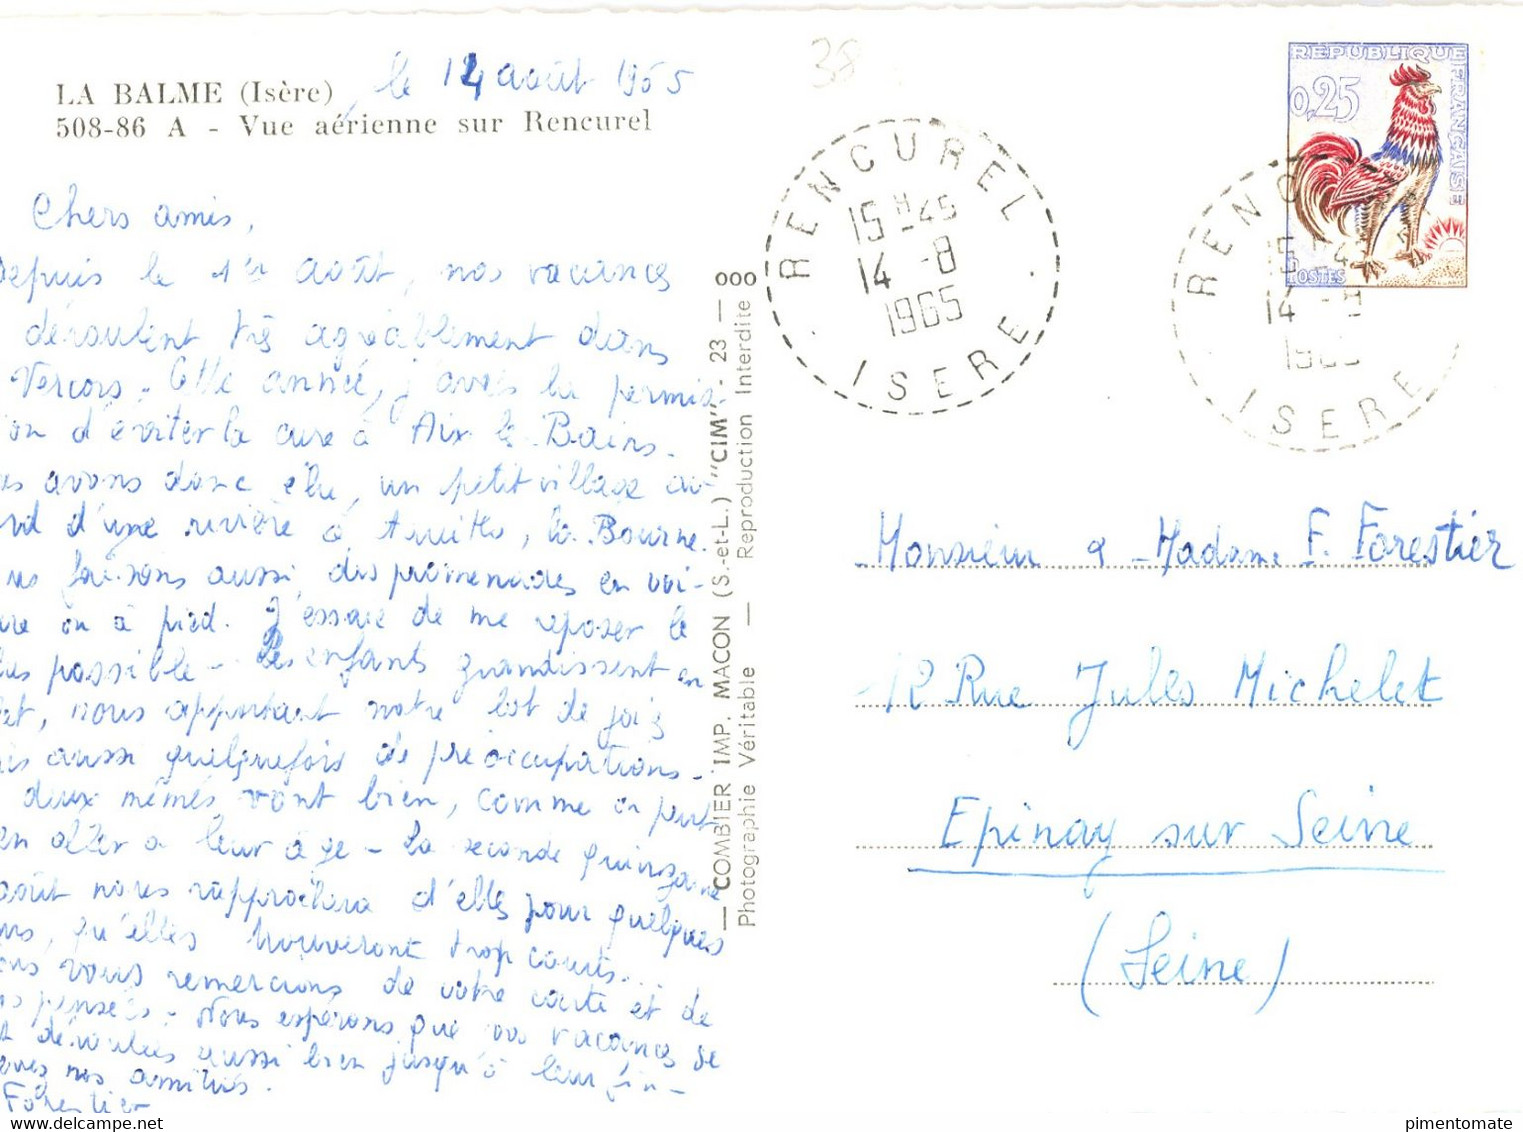 LA BALME (Isère)
508-86 A - Vue aérienne sur Rencurel
le 14 août 1965
38
Chers amis,
Depuis le 1er août, nos vacances
déroulent très agréablement dans
Vercors. Cette année, j'avais la permis-
ion d'éviter la cure à Aix le Bains.
us avons donc élu, un petit village au
rd d'une rivière à truites, la Bourne.
us faisons aussi, des promenades en voi-
ure ou à pied. J'essaie de me reposer le
lus possible - Les enfants grandissent en
et, nous apportant notre lot de joie
is aussi quelquefois de préoccupations.
deux mêmes vont bien, comme on peut
en aller à leur âge - La seconde quinzaine
août nous rapprochera d'elles pour quelques
urs, qu'elles trouveront trop courts...
ous vous remercions de votre carte et de
os pensées. Nous espérons que vos vacances se
déroulées aussi bien jusqu'à leur fin -
avec nos amitiés.
Forestier
— COMBIER IMP. MACON (S.-et-L.) "CIM" - 23 — 000
Photographie Véritable — Reproduction Interdite
RENCUREL
15 H 45
14 -8
1965
ISERE
REPUBLIQUE FRANÇAISE
0,25
POSTES
RENC
15 45
14 -8
1965
ISERE
Monsieur & Madame F. Forestier
12 Rue Jules Michelet
Epinay sur Seine
(Seine)
pimentomate